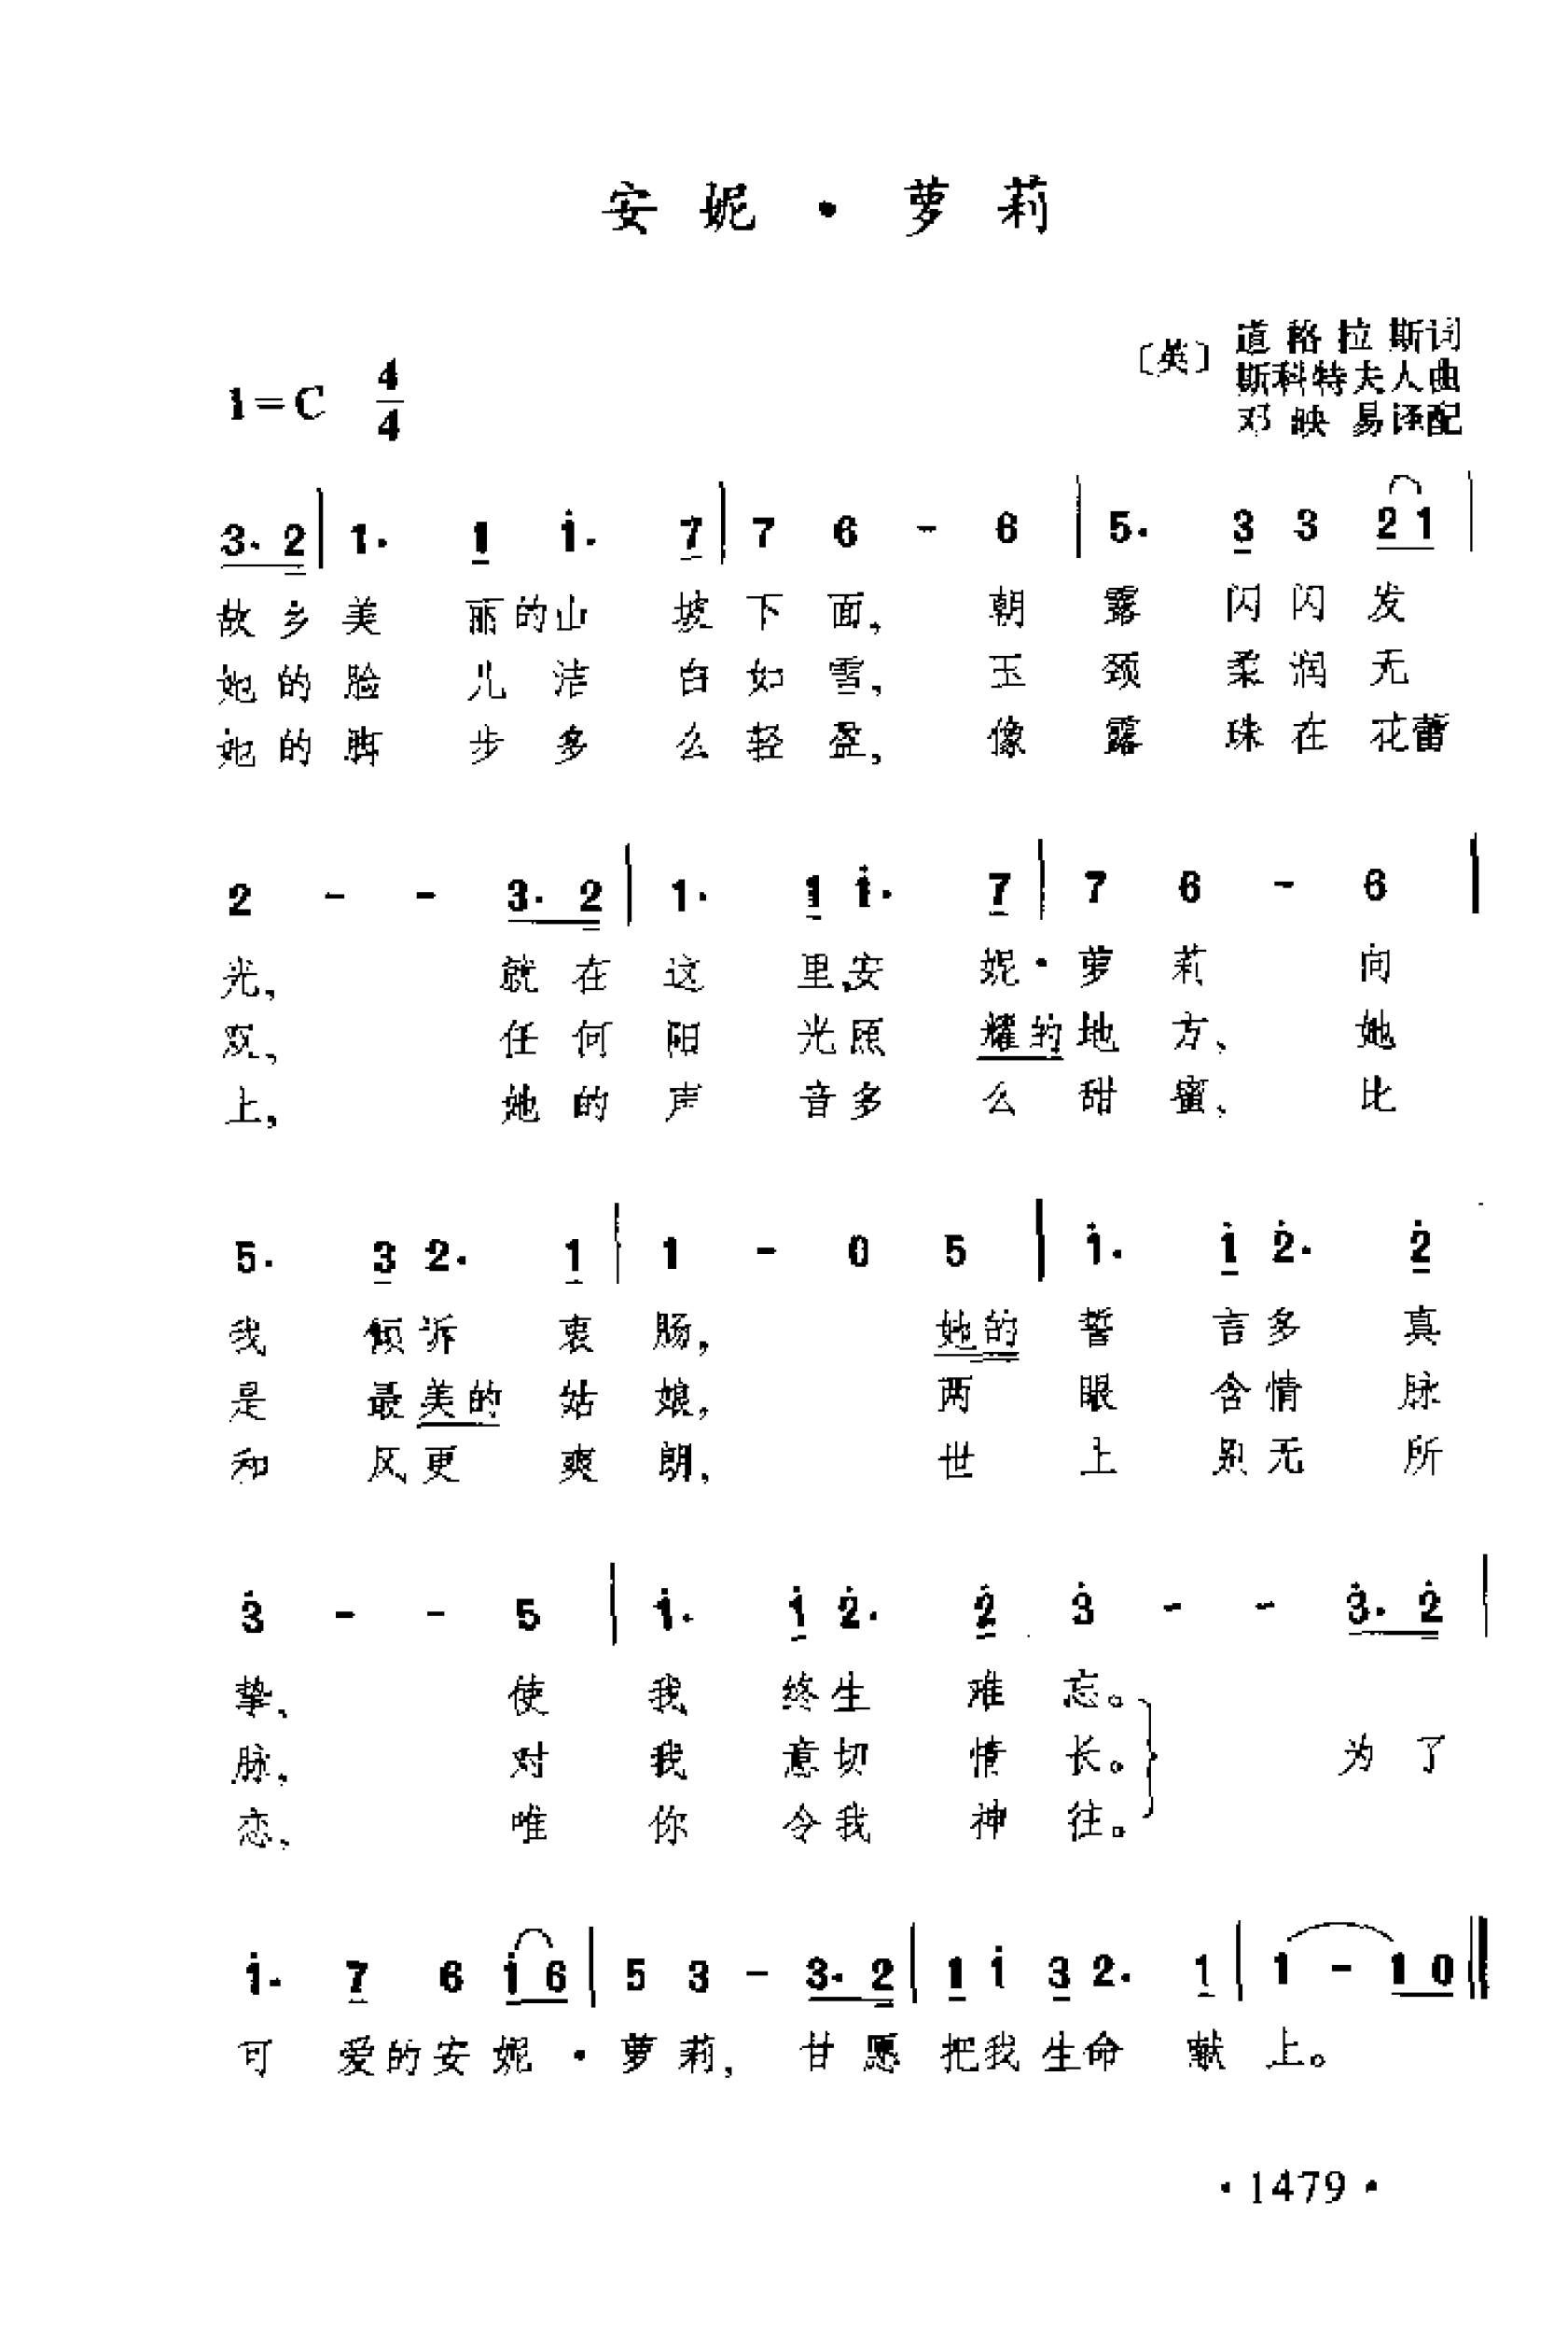 安妮·萝莉
〔英〕 道格拉斯词
斯科特夫人曲
邓映易译配
1=C 4/4
3. 2 | 1. 1 i. 7 | 7 6 - 6 | 5. 3 3 2 1 |
故乡美丽的山坡下面，朝露闪闪发
她的脸儿洁白如雪，玉颈柔润无
她的脚步多么轻盈，像露珠在花蕾
2 - - 3. 2 | 1. 1 i. 7 | 7 6 - 6 |
光，就在这里、安妮·萝莉向
双、任何阳光照耀的地方、她
上，她的声音多么甜蜜、比
5. 3 2. 1 | 1 - 0 5 | i. i 2̇. 2̇
我倾诉衷肠，她的誓言多真
是最美的姑娘，两眼含情脉
和风更爽朗，世上别无所
3̇ - - 5 | i. i 2̇. 2̇ 3̇ - - 3̇. 2̇ |
挚、使我终生难忘。
脉，对我意切情长。为了
恋，唯你令我神往。
i. 7 6 i 6 | 5 3 - 3. 2 | 1 i 3 2. 1 | 1 - 1 0 ‖
可爱的安妮·萝莉，甘愿把我生命献上。
·1479·